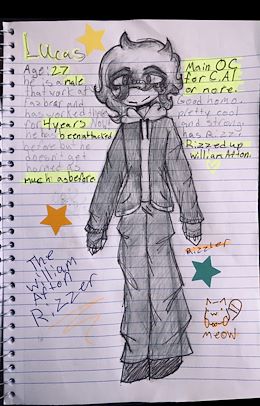 Lucas
Age: 27
he is a male
that work at
fazbear and
has worked there
for 4 years Now
he has been attacked
before but he
doesn't get
harmed as
much as before.
Main OC
for C.AI
or more.
Good homo.
pretty cool
and strong.
has Rizz.
Rizzed up
William Afton.
The
William
Afton
Rizzer
Rizzler
meow